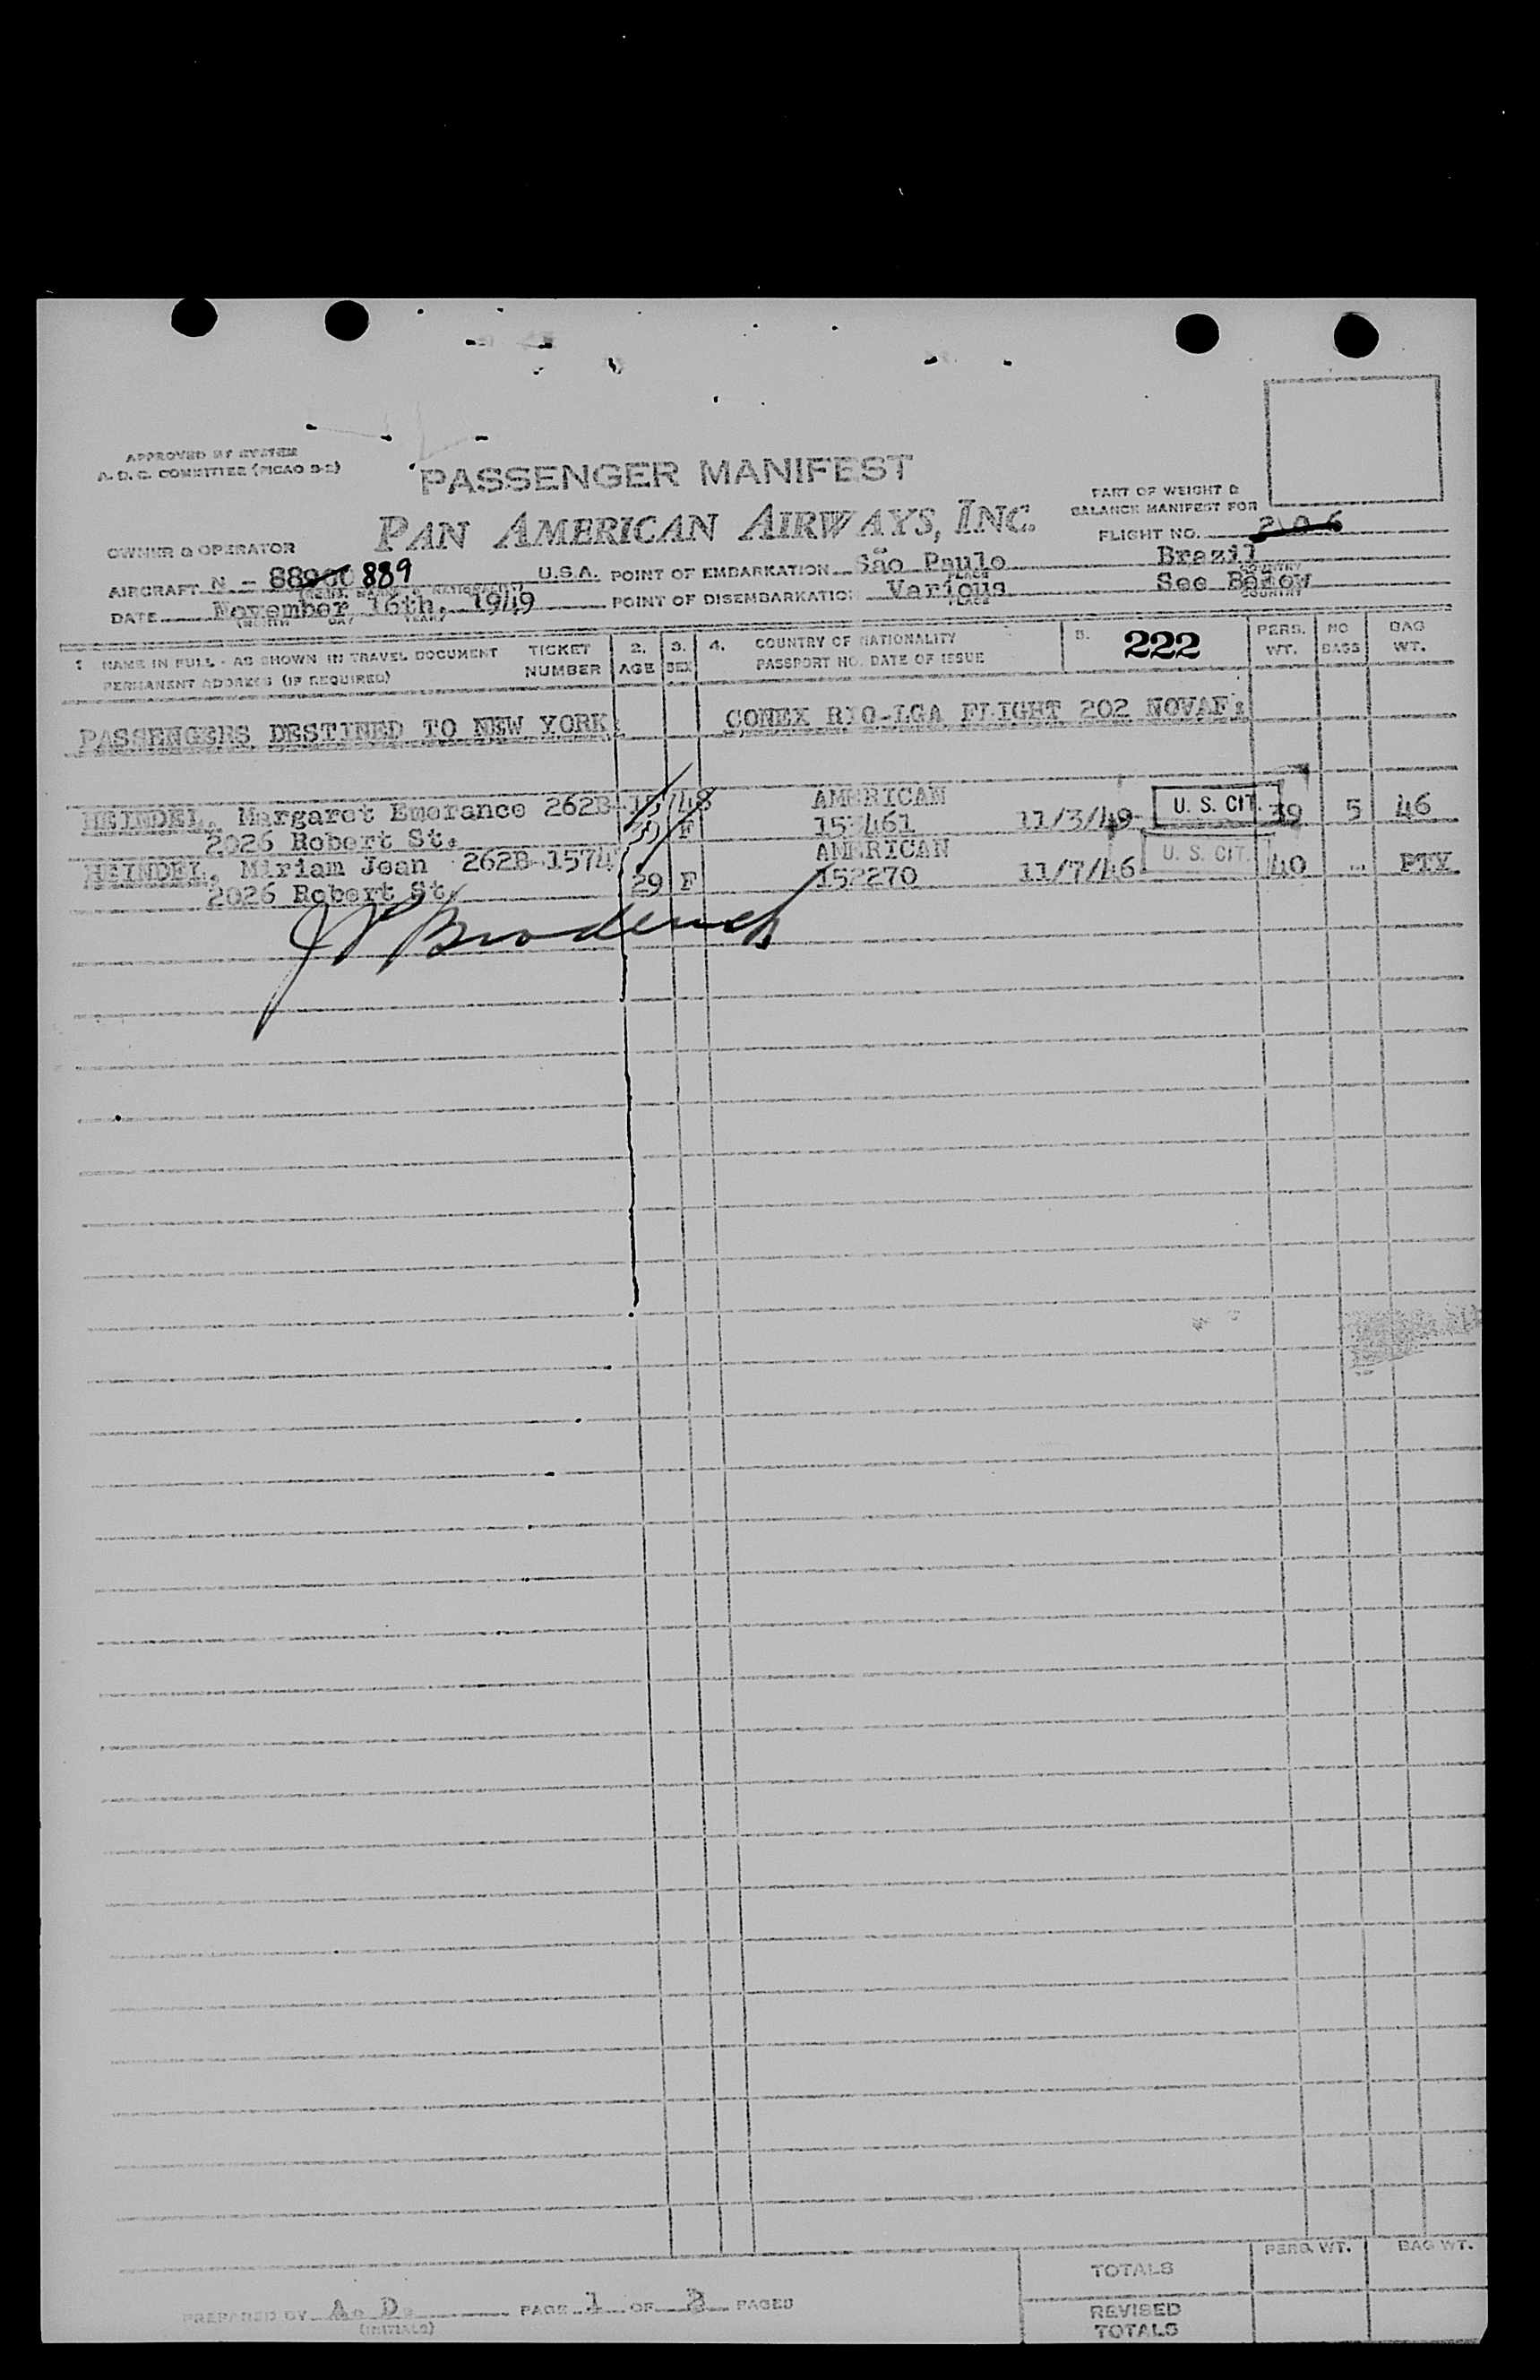 APPROVED BY SYSTEM
A. D. C. COMMITTEE (PICAO S-2)
PASSENGER MANIFEST
PART OF WEIGHT &
BALANCE MANIFEST FOR
PAN AMERICAN AIRWAYS, INC.
FLIGHT NO. 206
OWNER & OPERATOR
AIRCRAFT N - 88900 889 U.S.A. POINT OF EMBARKATION São Paulo Brazil
DATE November 16th, 1949 POINT OF DISEMBARKATION Various See Below
(MONTH DAY YEAR) PLACE COUNTRY
1 NAME IN FULL - AS SHOWN IN TRAVEL DOCUMENT TICKET 2. 3. 4. COUNTRY OF NATIONALITY 5. 222 PERS. NO BAG
PERMANENT ADDRESS (IF REQUIRED) NUMBER AGE SEX PASSPORT NO. DATE OF ISSUE WT. BAGS WT.
PASSENGERS DESTINED TO NEW YORK: CONEX RIO-LGA FLIGHT 202 NOV
HEINDEL, Margaret Emorance 262B AMERICAN
2026 Robert St. F 11/3/49 U. S. CIT. 39 5 46
HEINDEL, Miriam Jean 262B-1574 AMERICAN
2026 Robert St. 29 F 11/7/46 U. S. CIT. 40
TOTALS PERS. WT. BAG WT.
PREPARED BY A. D. PAGE 1 OF 3 PAGES
(INITIALS)
REVISED
TOTALS